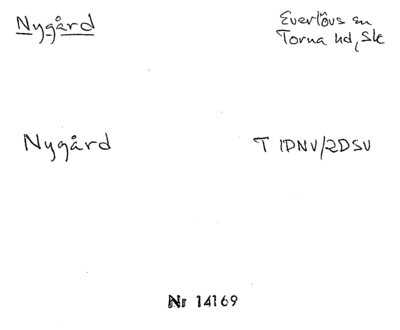 Nygård
Everlövs sn
Torna hd, Sk
Nygård
T 1DNV/2DSV
Nr 14169